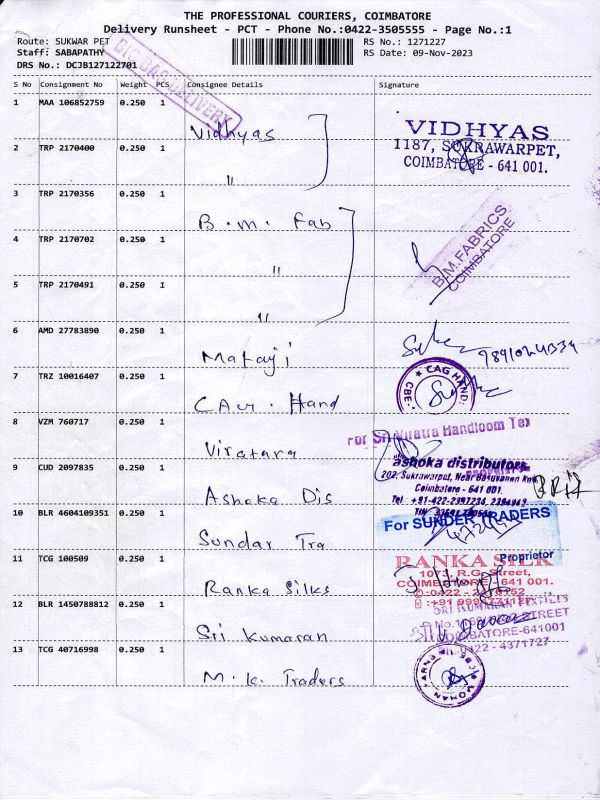 THE PROFESSIONAL COURIERS, COIMBATORE
Delivery Runsheet - PCT - Phone No.:0422-3505555 - Page No.:1
Route: SUKWAR PET
RS No.: 1271227
Staff: SABAPATHY
RS Date: 09-Nov-2023
DRS No.: DCJB127122701
S No Consignment No Weight PCS Consignee Details Signature
1 MAA 106852759 0.250 1 Vidhyas
VIDHYAS
1187, SUKRAWARPET,
COIMBATORE - 641 001.
2 TRP 2170400 0.250 1 "
3 TRP 2170356 0.250 1 B.M. Fab
B.M.FABRICS
COIMBATORE
4 TRP 2170702 0.250 1 "
5 TRP 2170491 0.250 1 "
6 AMD 27783890 0.250 1 Mataji
7 TRZ 10016407 0.250 1 CAG. Hand
CAG HAND
CBE
8 VZM 760717 0.250 1 Viratara
For Sri Viratra Handloom Tex
9 CUD 2097835 0.250 1 Ashoka Dis
ashoka distributors
202, Sukrawarpet, Near Basuvanan Kovil
Coimbatore - 641 001.
10 BLR 4604109351 0.250 1 Sundar Tra
For SUNDER TRADERS
Proprietor
11 TCG 100509 0.250 1 Ranka Silks
RANKA SILK
R.G. Street,
COIMBATORE - 641 001.
12 BLR 1450788812 0.250 1 Sri Kumaran
SRI KUMARAN TEXTILES
STREET
COIMBATORE-641001
0422 - 4371727
13 TCG 40716998 0.250 1 M.K. Traders